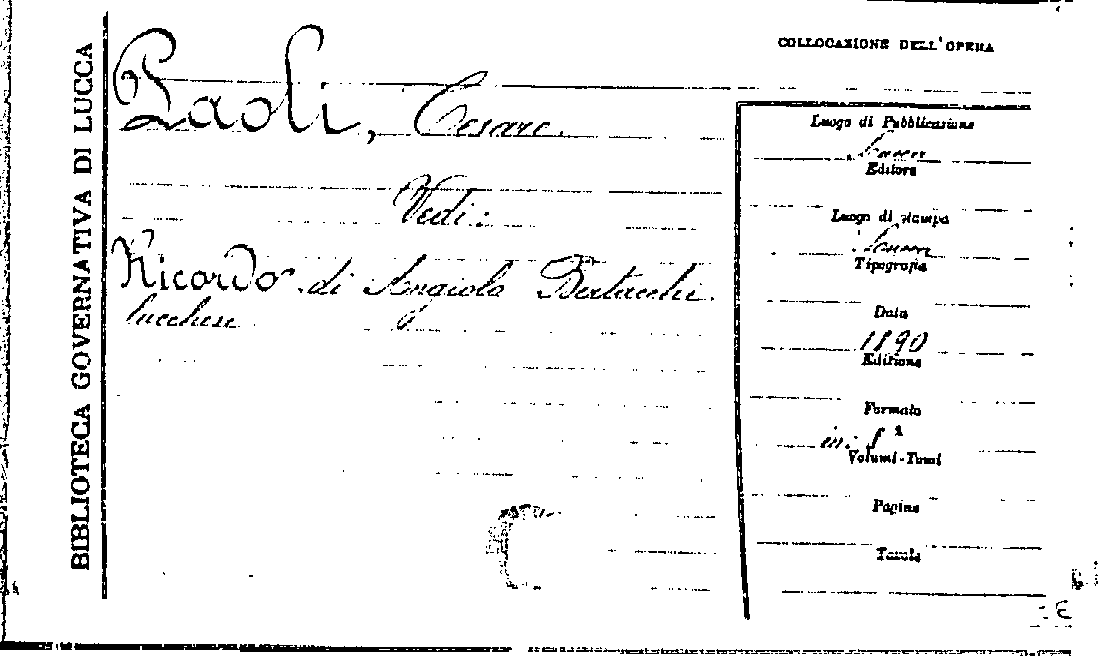 BIBLIOTECA GOVERNATIVA DI LUCCA
COLLOCAZIONE DELL'OPERA
Paoli, Cesare.
Vedi:
Ricordo di Angiolo Bertacchi
lucchese
Luogo di Pubblicazione
Lucca
Editore
Luogo di stampa
Lucca
Tipografia
Data
1890
Edizione
Formato
in: 8º
Volumi-Tomi
Pagine
Tavole